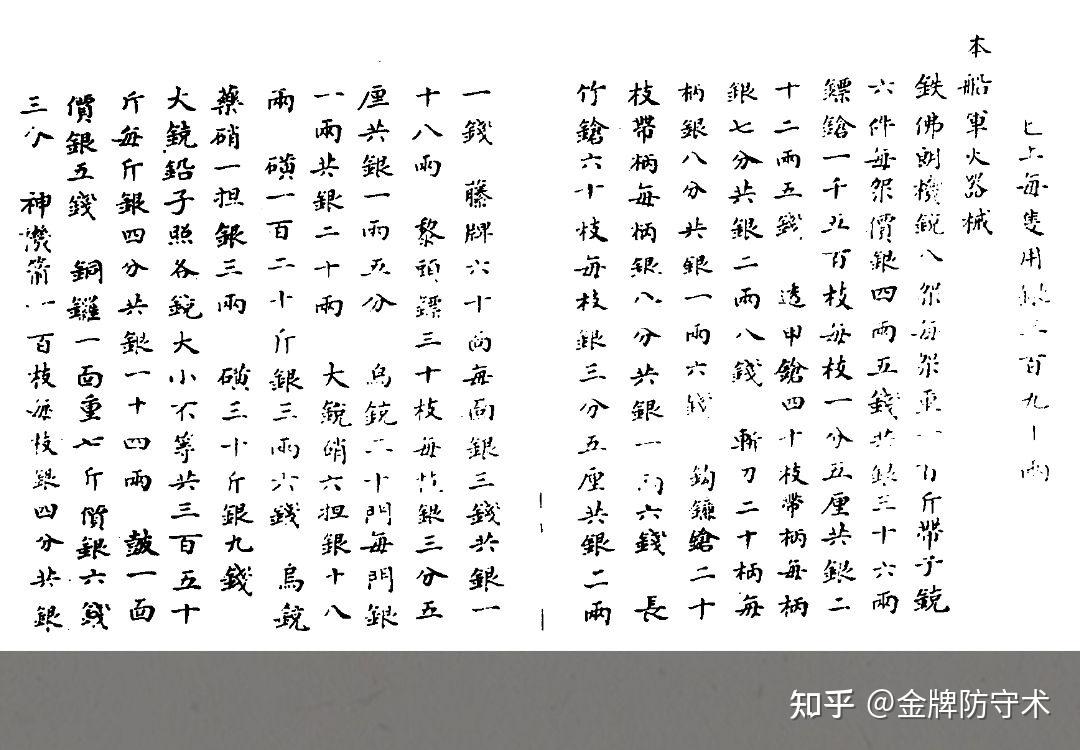 已上每隻用銀三百九十兩
本船軍火器械
鉄佛朗機銃八架每架重一百斤帶子銃
六件每架價銀四兩五錢共銀三十六兩
鏢鎗一千五百枝每枝一分五厘共銀二
十二兩五錢 透甲鎗四十枝帶柄每柄
銀七分共銀二兩八錢 斬刀二十柄每
柄銀八分共銀一兩六錢 鈎鐮鎗二十
枝帶柄每柄銀八分共銀一兩六錢 長
竹鎗六十枝每枝銀三分五厘共銀二兩
一錢 藤牌六十面每面銀三錢共銀一
十八兩 黎頭鏢三十枝每枝銀三分五
厘共銀一兩五分 烏銃二十門每門銀
一兩共銀二十兩 大銃硝六担銀十八
兩 磺一百二十斤銀三兩六錢 烏銃
藥硝一担銀三兩 磺三十斤銀九錢
大銃鉛子照各銃大小不等共三百五十
斤每斤銀四分共銀一十四兩 皷一面
價銀五錢 銅鑼一面重七斤價銀六錢
三分 神 箭一百枝每枝銀四分共銀
知乎 @金牌防守术